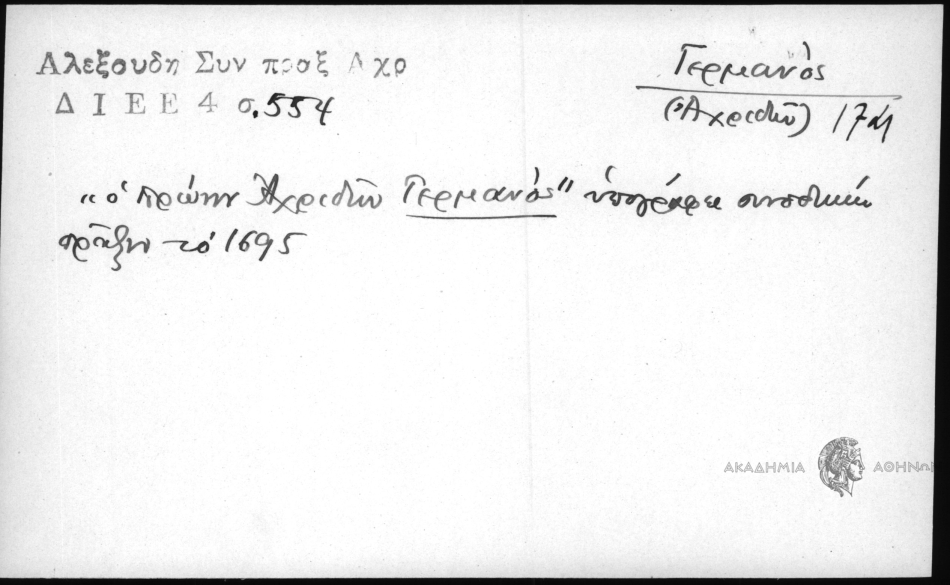 Αλεξουδη Συν πραξ Αχρ
Δ Ι Ε Ε 4 σ.554
Γερμανὸς
(Ἀχριδῶν) 17
"ὁ πρώην Ἀχριδῶν Γερμανὸς" ὑπογράφει συνοδικὴν
πρᾶξιν τὸ 1695
ΑΚΑΔΗΜΙΑ ΑΘΗΝΩΝ